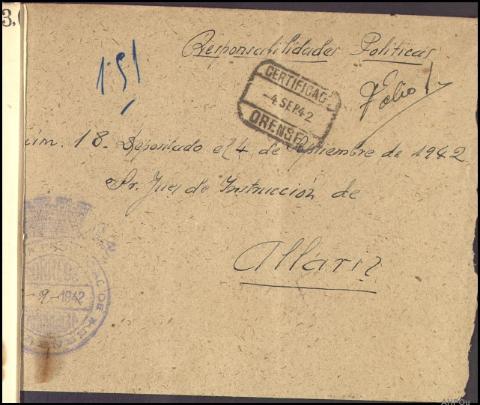 3.
Responsabilidades Políticas
151
CERTIFICAD
-4 SEP 42
ORENSE
Folio 1
núm. 18. Depositado el 4 de Septiembre de 1942
Sr. Juez de Instrucción de
Allariz
CORREOS
-9-1942